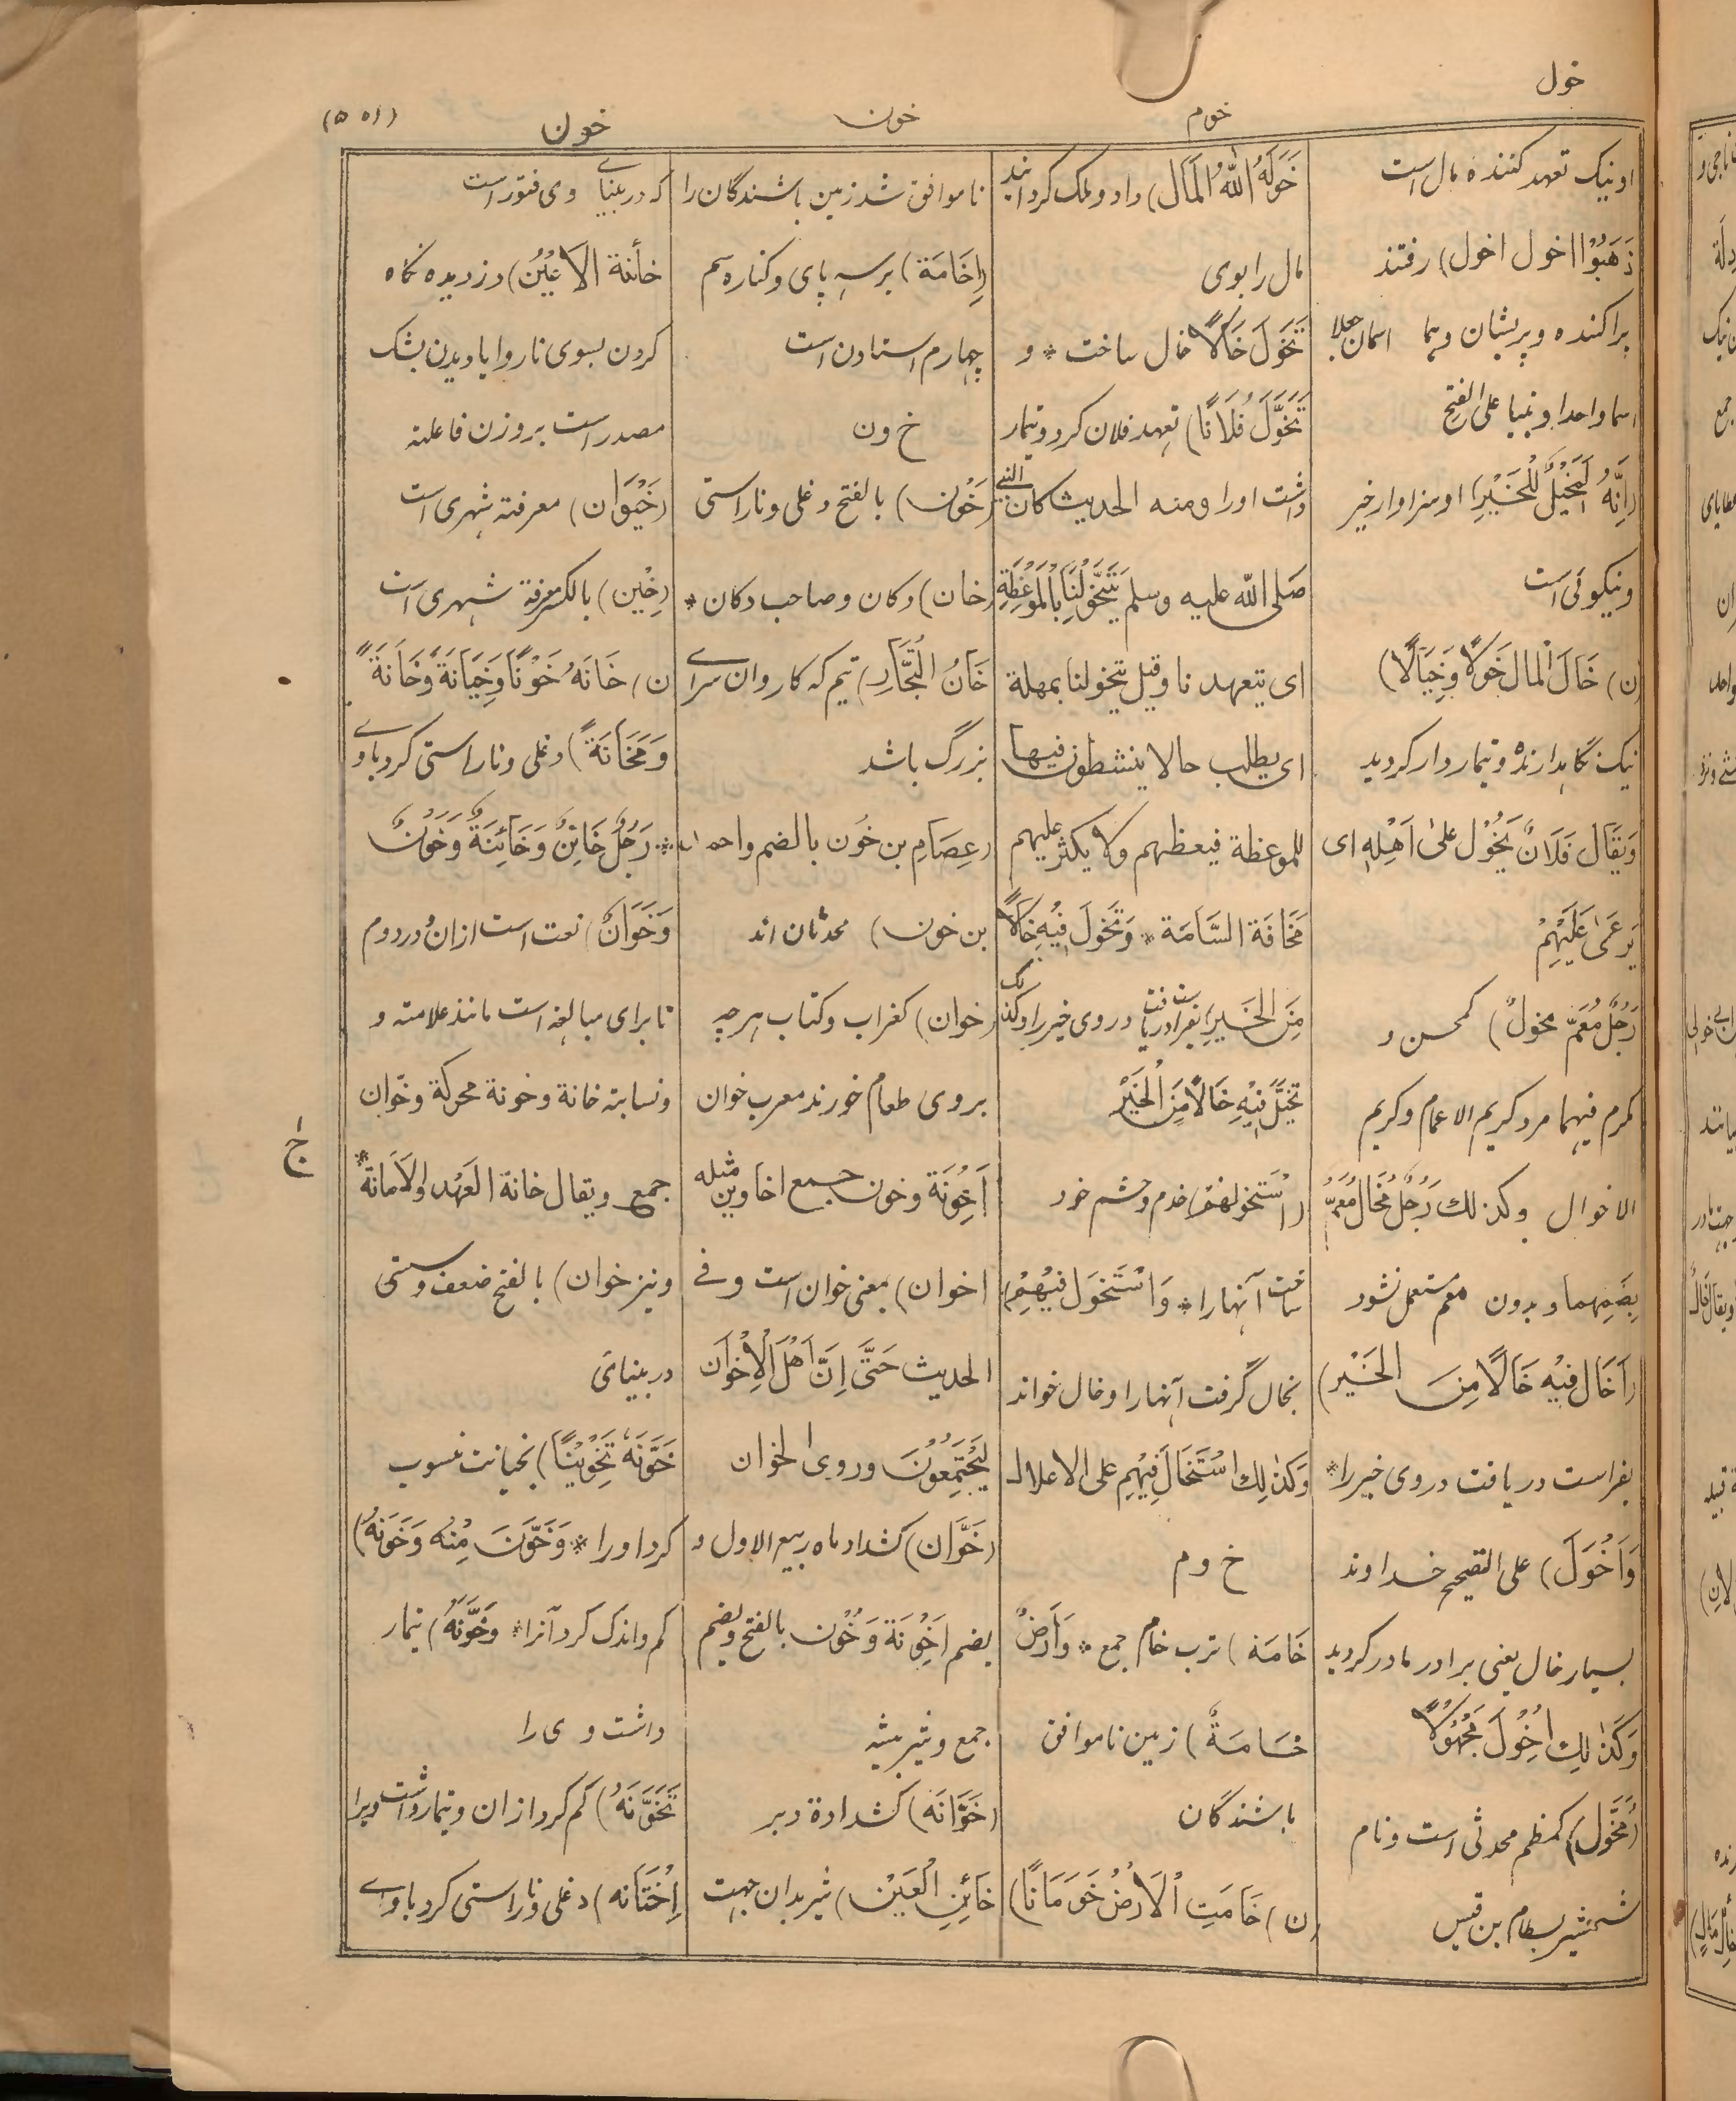 خول
خوم
خون
خون
(۵۵۱)
او نیک تعهد کننده مال است
ذَهَبُوْا اخول اخول) رفتند
پراکنده و پریشان وہما اسمان جعلا
اسما واحدا و بنیا علی الفتح
(اِنَّهُ لَمَخِیْلٌ لِلْخَیْرِ) او سزاوار خیر
و نیکوئی است
(ن) خَالَ الْمال خَوْلًا وَخِیَالًا)
نیک نگاہدارنده و تیماردار گردید
وَیُقَال فُلَانٌ یَخُوْل عَلیٰ اَهْلِهٖ ای
یَرعیٰ عَلَیْهِمْ
رَجُلٌ مُعَمّ مخولٌ) کمحسن و
کمرم فیهما مرد کریم الاعمام و کریم
الاخوال وکذلك رَجُلٌ مُخَال مُعَمّ
بِضَمِّهِما و بدون معم مستعمل نشود
(اَخَالَ فِیْهِ خَالًا مِنَ الخَیْر)
بفراست دریافت در وی خیر را*
وَاَخْوَلَ) علی التصحیح خداوند
بسیار خال یعنی برادر مادر گردید
وَکَذٰلِكَ اُخْوِلَ مَجْهُوْلًا
(مُخَوَّل) کمعظم محدثی است و نام
شمشیر بسطام بن قیس
خَوَّلَهُ اللهُ المَال) داد و ملک گردانید
مال را بوی
تَخَوَّلَ خَالًا خال ساخت * و
تَخَوَّلَ فُلَانًا) تعهد فلان کرد و تیمار
داشت اورا ومنه الحدیث کان النبی
صَلی الله علیه وسلم یَتَخَوَّلُنَا بِالْمَوْعِظَةِ
ای یتعهدنا وقیل یتحولنا بمهملة
ای یطلب حالا ینشطون فیها
للموعظة فیعظهم ولا یکثر علیهم
مَخَافَة السَّامَة * وَتَخَوَّلَ فِیْهِ خَالًا
مِنَ الخَیرِ) بفراست دریافت در وی خیر را وکذلك
تَخَیَّلَ فِیْهِ خَالًا مِنَ الْخَیْر
(اسْتَخْولهُم) خدم و حشم خود
ساخت آنها را * وَاسْتَخْوَل فِیْهِمْ)
بخال گرفت آنها را و خال خواند
وَکَذٰلِكَ اسْتَخَالَ فِیْهِمْ علی الاعلال
خ و م
خَامَة) ترب خام جمع * وَاَرضٌ
خَامَةٌ) زمین ناموافق
باشندگان
(ن) خَامَتِ الْاَرْضُ خَوَمَانًا)
ناموافق شد زمین باشندگان را
(اِخَامَة) بر سہ پای و کنارہ سم
چہارم استادن است
خ ون
(خَوْن) بالفتح دغلی و ناراستی
(خان) دکان و صاحب دکان *
خَانُ التُّجَّارِ) تیم کہ کاروان سرای
بزرگ باشد
(عِصَامِ بن خُون بالضم واحمد
بن خون) محدثان اند
(خوان) کغراب وکتاب ہرچہ
بروی طعام خورند معرب خوان
اَخْوِنَة وخون جمع اخاوین مثله
اخوان) بمعنی خوان است وفی
الحدیث حَتَّی اِنَّ اَهْلَ الْاِخْوَان
لَیَجْتَمِعُوْنَ وروی الخوان
(خَوَّان) کشداد ماہ ربیع الاول و
بضم اَخْوِنَة وَخُوْن بالفتح و بضم
جمع و شیر بیشہ
(خَوَّانَه) کشدادة دبر
خَائِنِ الْعَیْن) شیر بدان جہت
کہ در بینای وی فتور است
خائنة الاعْیُن) دزدیدہ نگاہ
کردن بسوی ناروا یا دیدن بشک
مصدر است بروزن فاعلة
(خَیْوَان) معرفتہ شہری است
(خِیْن) بالکسر معرفة شہری است
(ن) خَانَهُ خَوْنًا وَخِیَانَةً وَخَانَةً
وَمَخَانَةً) دغلی و ناراستی کرد باوی
* رَجُلٌ خَائِنٌ وَخَائِنَةٌ وَخَؤُنٌ
وَخَوَّانٌ) نعت است ازان و در دوم
تا برای مبالغہ است مانند علامتہ و
و نسابتہ خانة وخونة محرکة وخوان
جمع ویقال خانة العَهْد والاَمانَةَ *
و نیز خوان) بالفتح ضعف و سستی
در بینائی
خَوَّنَهٗ تَخْوِیْنًا) بخیانت منسوب
کرد اورا * وَخَوَّنَ مِنْهُ وَخَوَّنَهُ)
کم و اندک کرد آنرا * وَخَوَّنَهُ) تیمار
داشت وی را
تَخَوَّنَهُ) کم کرد ازان و تیمار داشت ویرا
اِخْتَانَه) دغلی و ناراستی کرد باوی